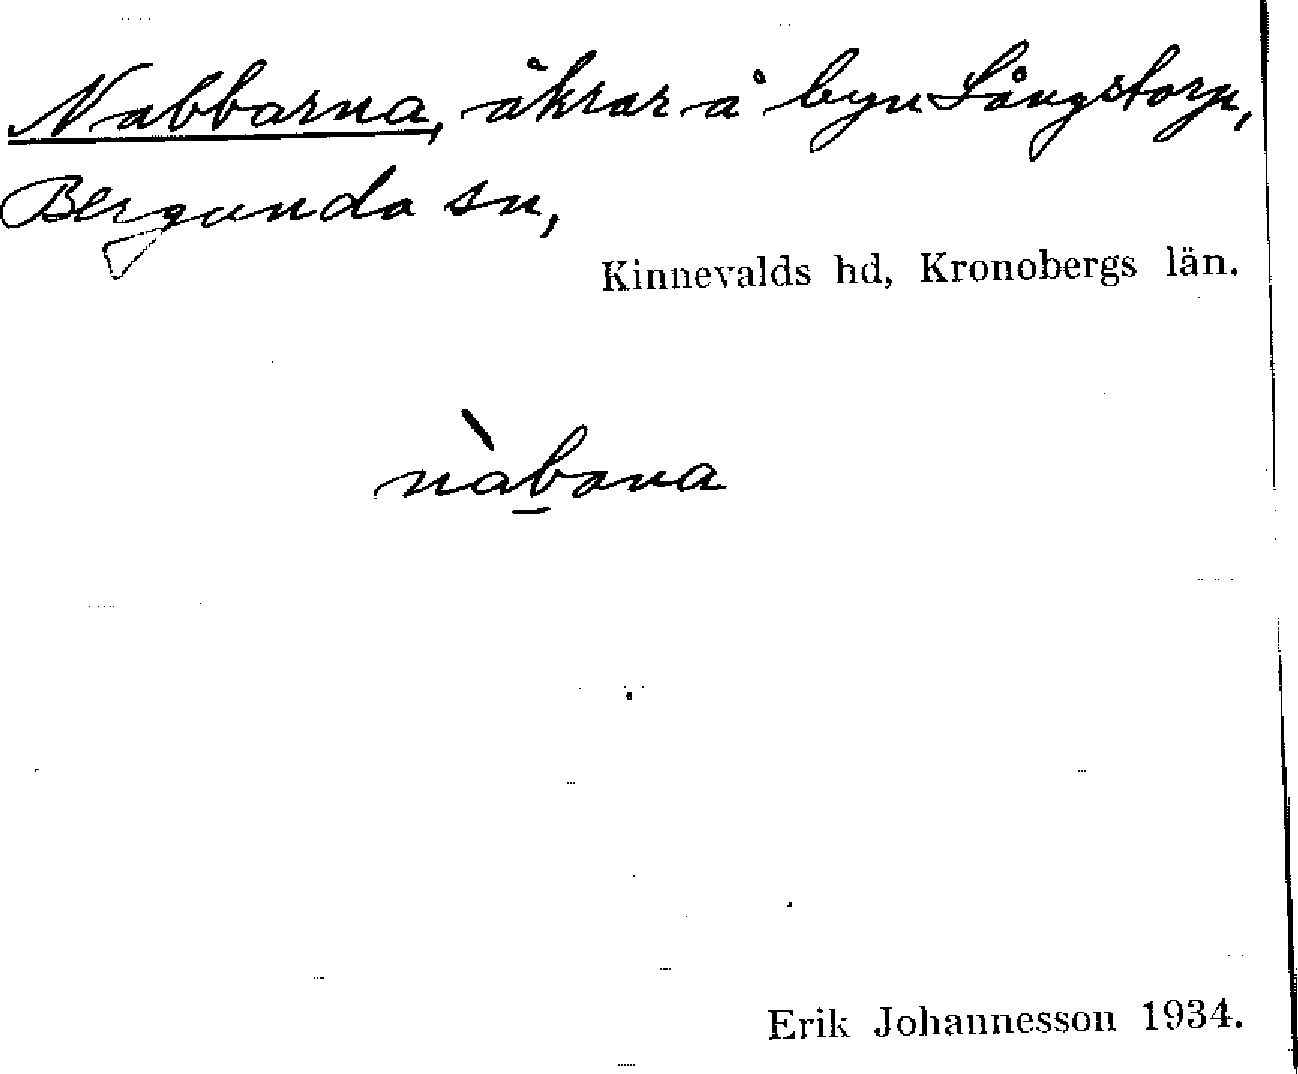 Nabbarna, åkrar å byn Långstorp,
Bergunda sn,
Kinnevalds hd, Kronobergs län.
nàb̲ana
Erik Johannesson 1934.